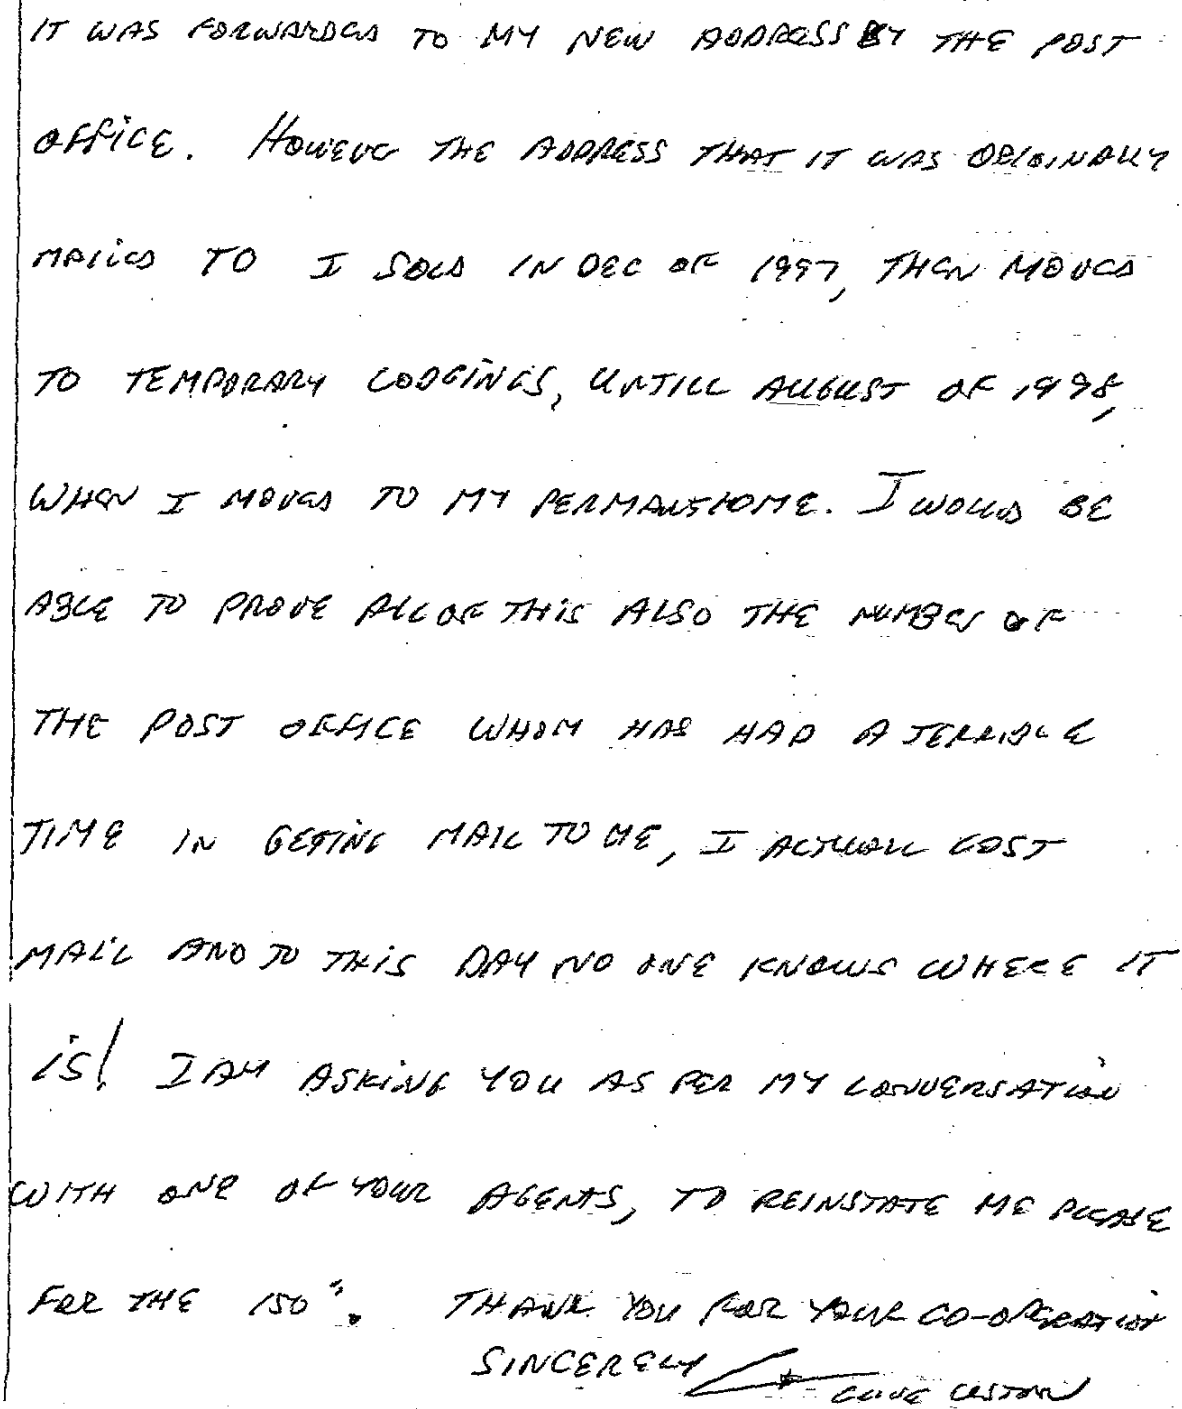 IT WAS FORWARDED TO MY NEW ADDRESS BY THE POST
OFFICE. HOWEVE THE ADDRESS THAT IT WAS ORIGINALLY
MAILED TO I SOLD IN DEC OF 1997, THEN MOVED
TO TEMPORARY LODGINGS, UNTILL AUGUST OF 1998,
WHEN I MOVED TO MY PERMANT HOME. I WOULD BE
ABLE TO PROVE ALL OF THIS ALSO THE NUMBER OF
THE POST OFFICE WHOM HAS HAD A TERRIBLE
TIME IN GETING MAIL TO ME, I ACTUALL LOST
MAIL AND TO THIS DAY NO ONE KNOWS WHERE IT
IS! I AM ASKING YOU AS PER MY CONVERSATION
WITH ONE OF YOUR AGENTS, TO REINSTATE ME PLEASE
FOR THE 150". THANK YOU FOR YOUR CO-OPERATION
SINCERELY